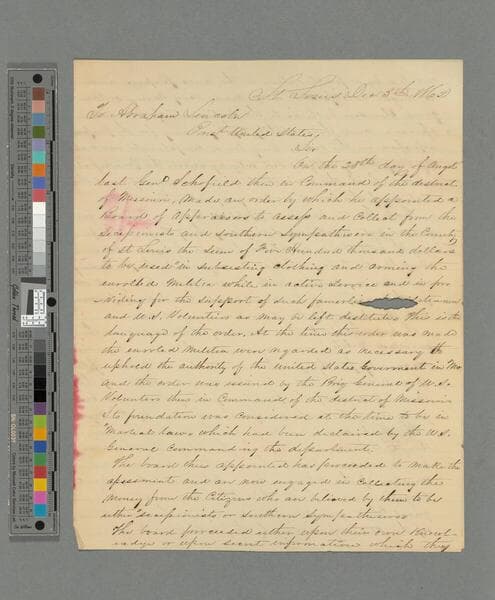 St. Louis Dec 8th 1862
To Abraham Lincoln
Prest United States;
Sir
On the 28th day of Augst
last Genl Schofield then in Command of the district
of Missouri, Made an order by which he appointed a
Board of Appraisers to Assess and Collect from the
Secessionists and Southern Sympathisers in the County
of St Louis the sum of Five Hundred thousand dollars
to be used "in subsisting clothing and arming the
enrolled Militia while in active service and in pro
viding for the support of such families
and U.S. Volunteers as may be left destitute. This is the
language of the order. At the time this order was made
the enrolled Militia were regarded as necessary to
uphold the authority of the United States Government in Mo
and the order was issued by the Brig General of U.S.
Volunteers then in Command of the district of Missouri
Its foundation was considered at the time to be in
"Martial law" which had been declared by the U.S.
General Commanding the department.
The board thus appointed has proceeded to make the
assessment and are now engaged in Collecting the
Money from the Citizens who are believed by them to be
either Secessionists or Southern Sympathisers
The board proceeded either upon their own Knowl-
edge or upon secret information which they